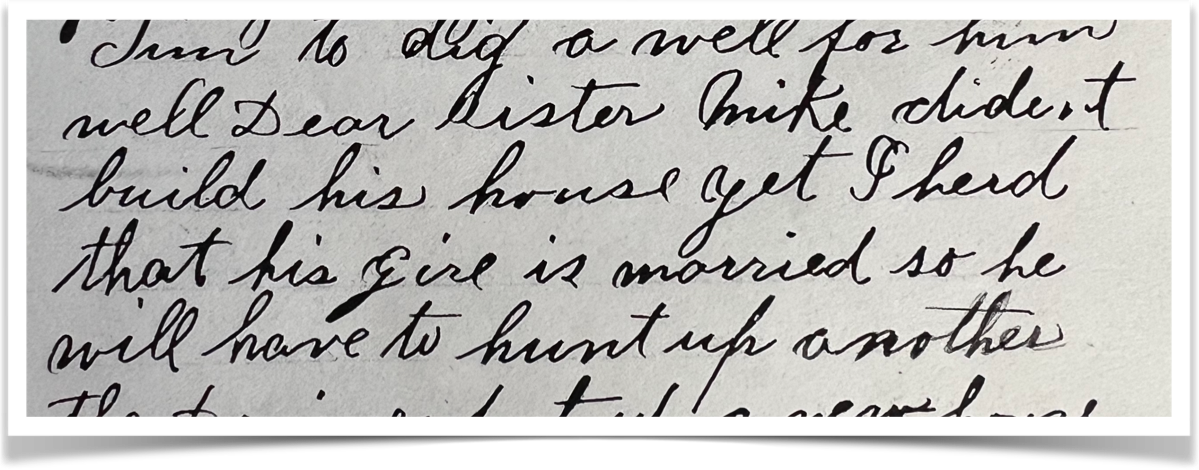 to dig a well for him
well Dear Sister Mike dident
build his house yet I herd
that his girl is married so he
will have to hunt up another